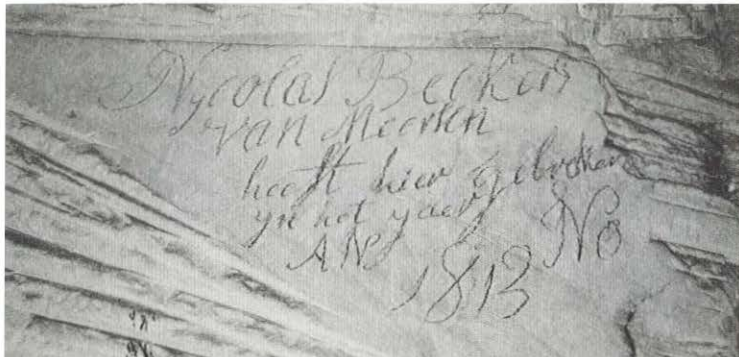 Nycolas Beckers
van Meersen
heeft hier gebroken
yn het yaer
AN No
1813